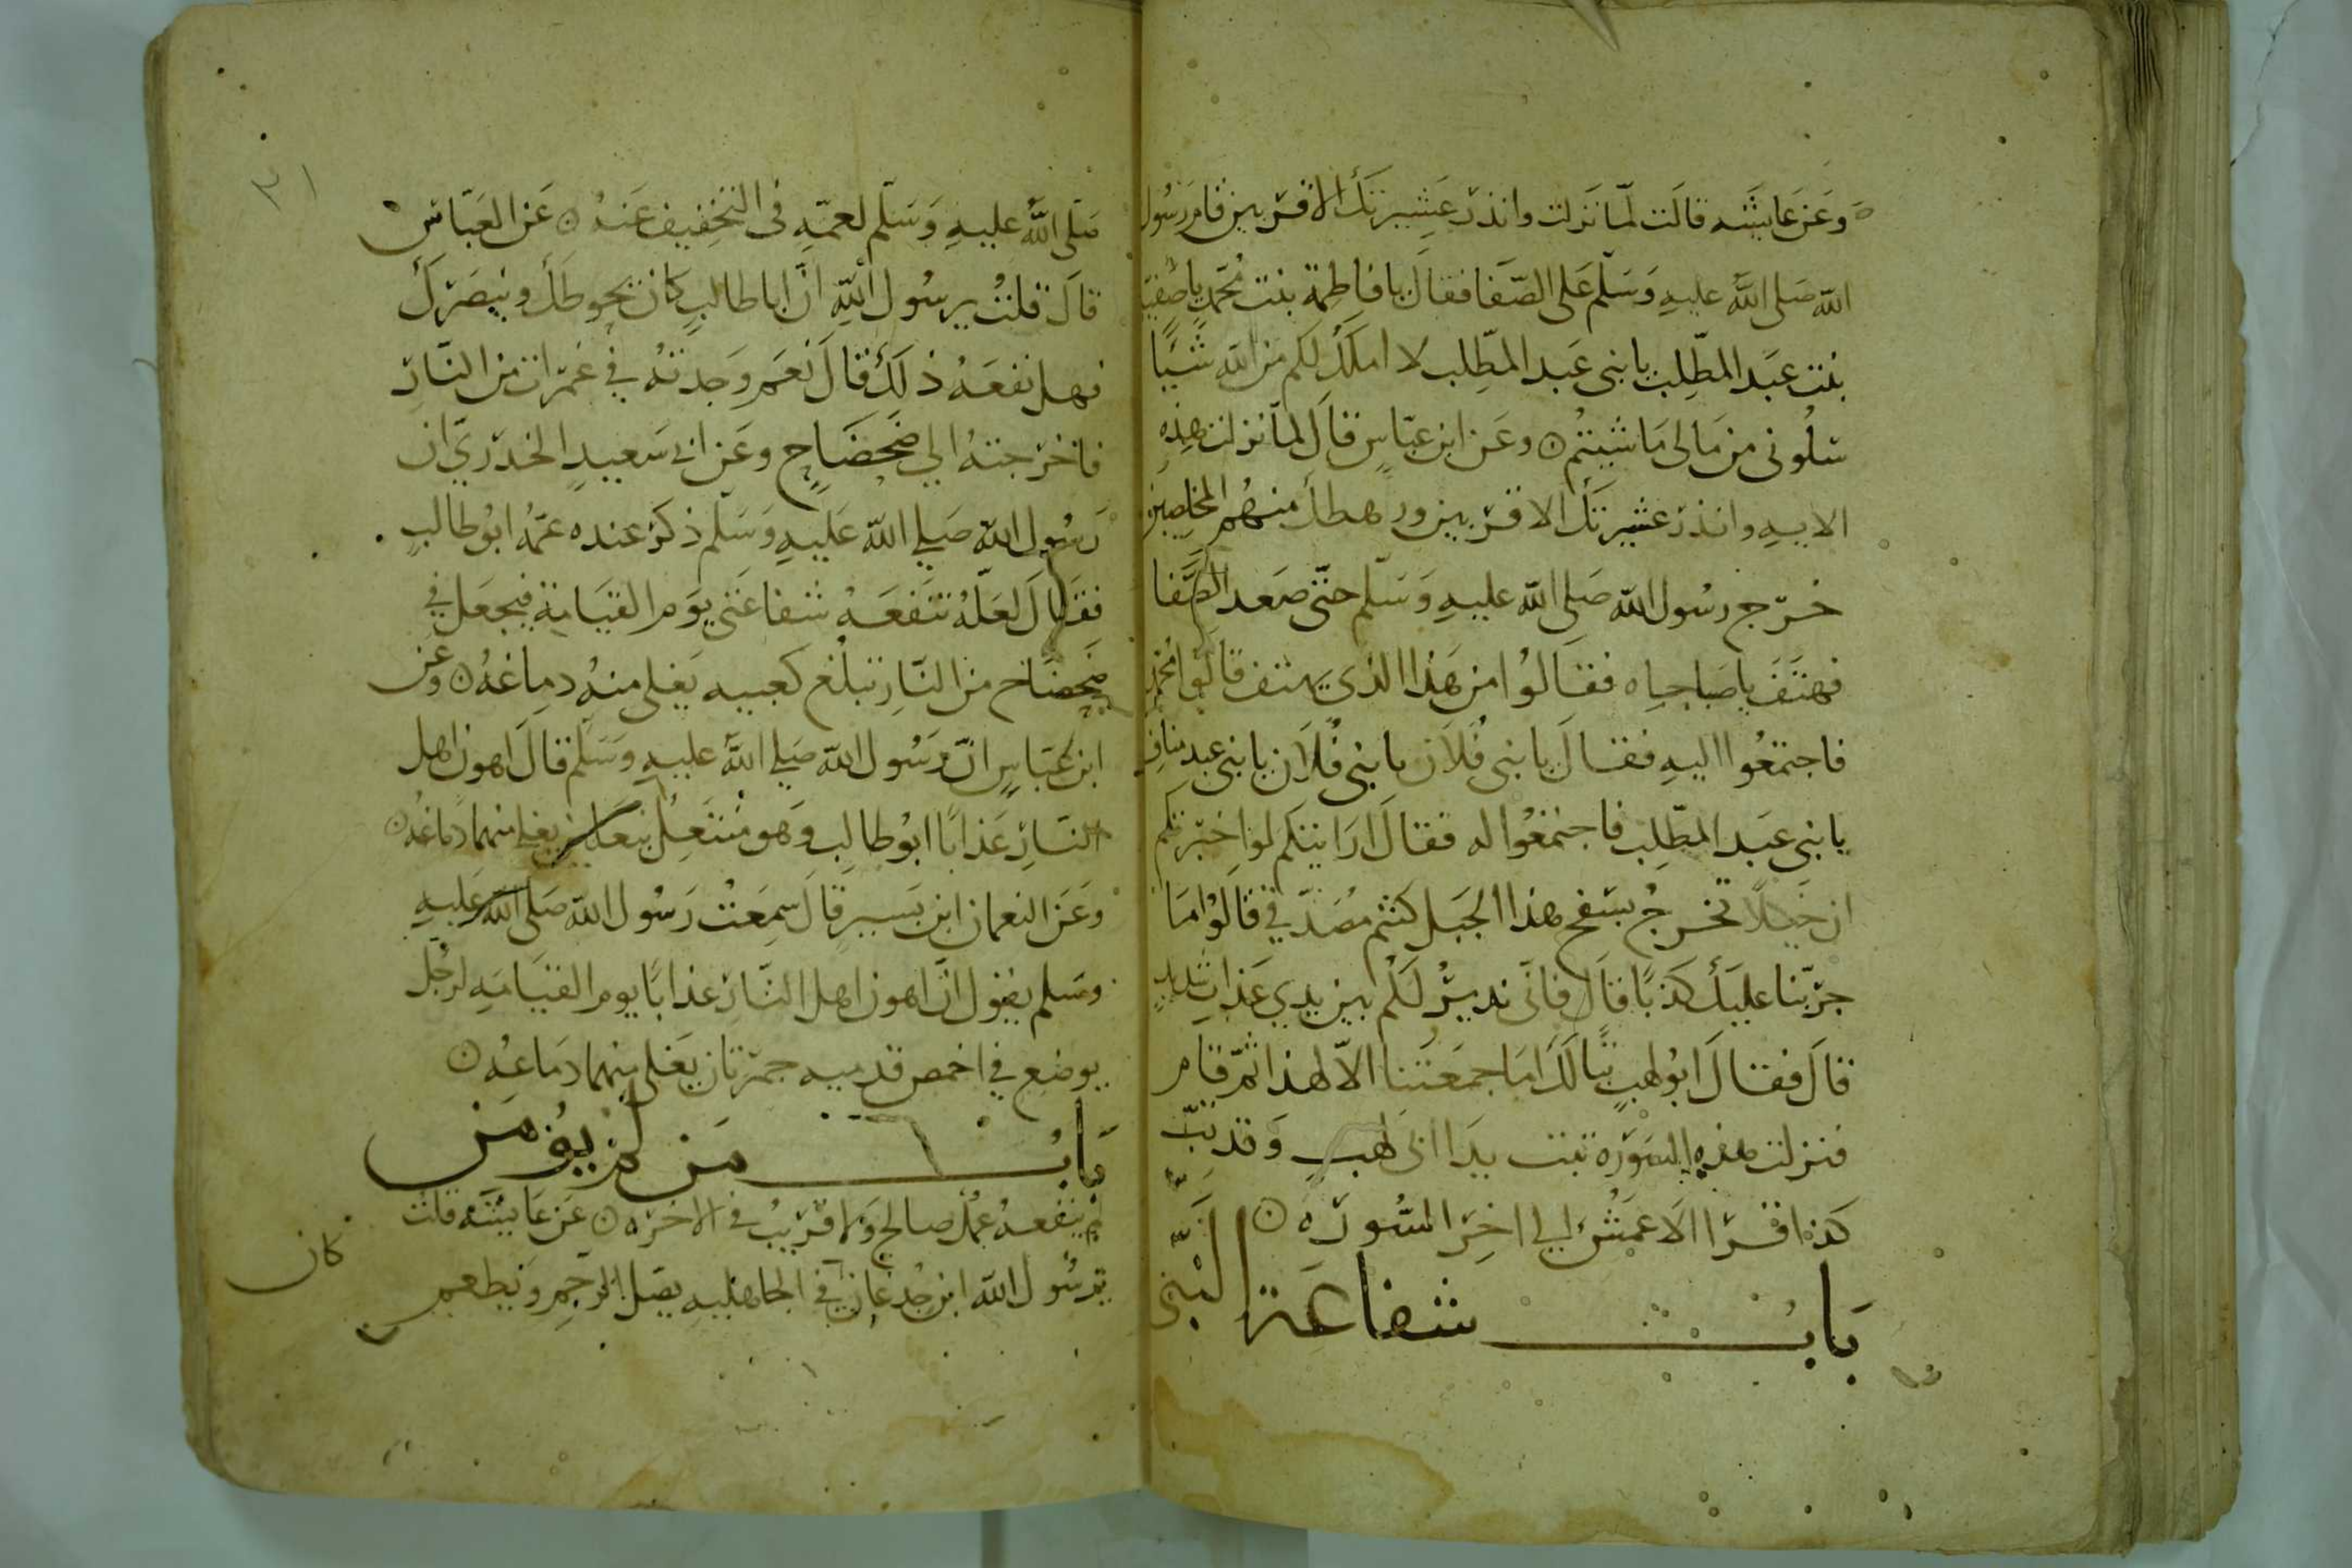 وعن عايشه قالت لما نزلت وانذر عشيرتك الاقربين قام رسول
الله صلى الله عليه وسلم على الصفا فقال يا فاطمة بنت محمد يا صفية
بنت عبد المطلب يا بنى عبد المطلب لا املك لكم من الله شيا
سلونى من مالى ما شيتم ٥ وعن ابن عباس قال لما نزلت هذه
الايه وانذر عشيرتك الاقربين ورهطك منهم المخلصين
خرج رسول الله صلى الله عليه وسلم حتى صعد الصفا
فهتف يا صباحاه فقالوا من هذا الذى يهتف قالوا محمد
فاجتمعوا اليه فقال يا بنى فلان يا بنى فلان يا بنى عبد مناف
يا بنى عبد المطلب فاجتمعوا له فقال ارايتكم لو اخبرتكم
ان خيلا تخرج بسفح هذا الجبل كنتم مصدقي قالوا ما
جربنا عليك كذبا قال فانى نذير لكم بين يدي عذاب شديد
قال فقال ابو لهب تبا لك اما جمعتنا الا لهذا ثم قام
فنزلت هذه السورة تبت يدا ابى لهب وقد تب
كذا قرا الاعمش الي اخر السوره ٥
باب شفاعة النبى
٣١
صلى الله عليه وسلم لعمه فى التخفيف عنه ٥ عن العباس
قال قلت يرسول الله ان ابا طالب كان يحوطك وينصرك
فهل نفعه ذلك قال نعم وجدته في غمرات من النار
فاخرجته الي ضحضاح وعن ابى سعيد الخدري ان
رسول الله صلي الله عليه وسلم ذكر عنده عمه ابو طالب
فقال لعله تنفعه شفاعتى يوم القيامة فيجعل في
ضحضاح من النار تبلغ كعبيه يغلى منه دماغه ٥ وعن
ابن عباس ان رسول الله صلي الله عليه وسلم قال اهون اهل
النار عذابا ابو طالب وهو منتعل بنعلين يغلي منهما دماغه ٥
وعن النعمان ابن بسير قال سمعت رسول الله صلى الله عليه
وسلم يقول ان اهون اهل النار عذابا يوم القيامه لرجل
يوضع في اخمص قدميه جمرتان يغلى منهما دماغه ٥
باب من لم يومن
لم ينفعه عمل صالح ولا قريب في الاخره ٥ عن عايشه قلت
يرسول الله ابن جدعان في الجاهليه يصل الرحم ويطعم
كان